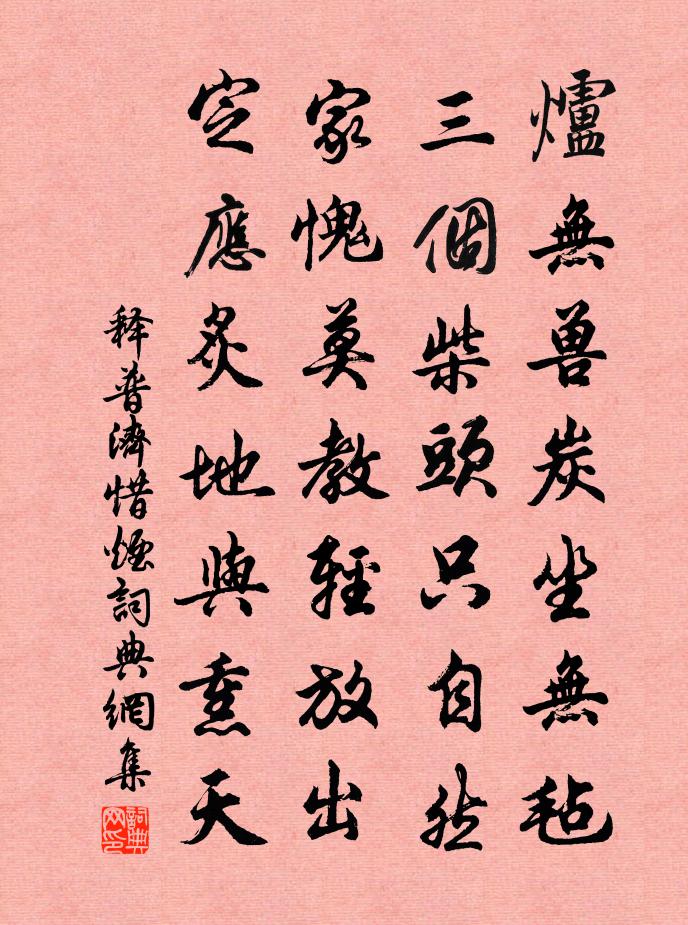 爐無兽炭坐無毡
三個柴頭只自然
家愧莫教輕放出
定應炙地與熏天
释普濟惜煙詞典網集
詞典网印